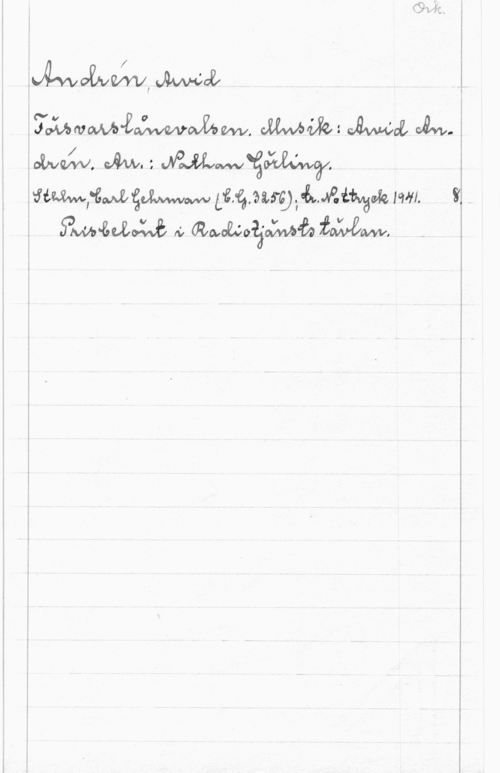 Ork.
Andrén, Arvid
Försvarslånevalsen. Musik: Arvid An-
drén. Arr.: Nathan Görling.
Sthlm, Carl Gehrman (C.G. 3256); tr. Nottryck 1941. 8
Prisbelönt i Radiotjänsts tävlan.